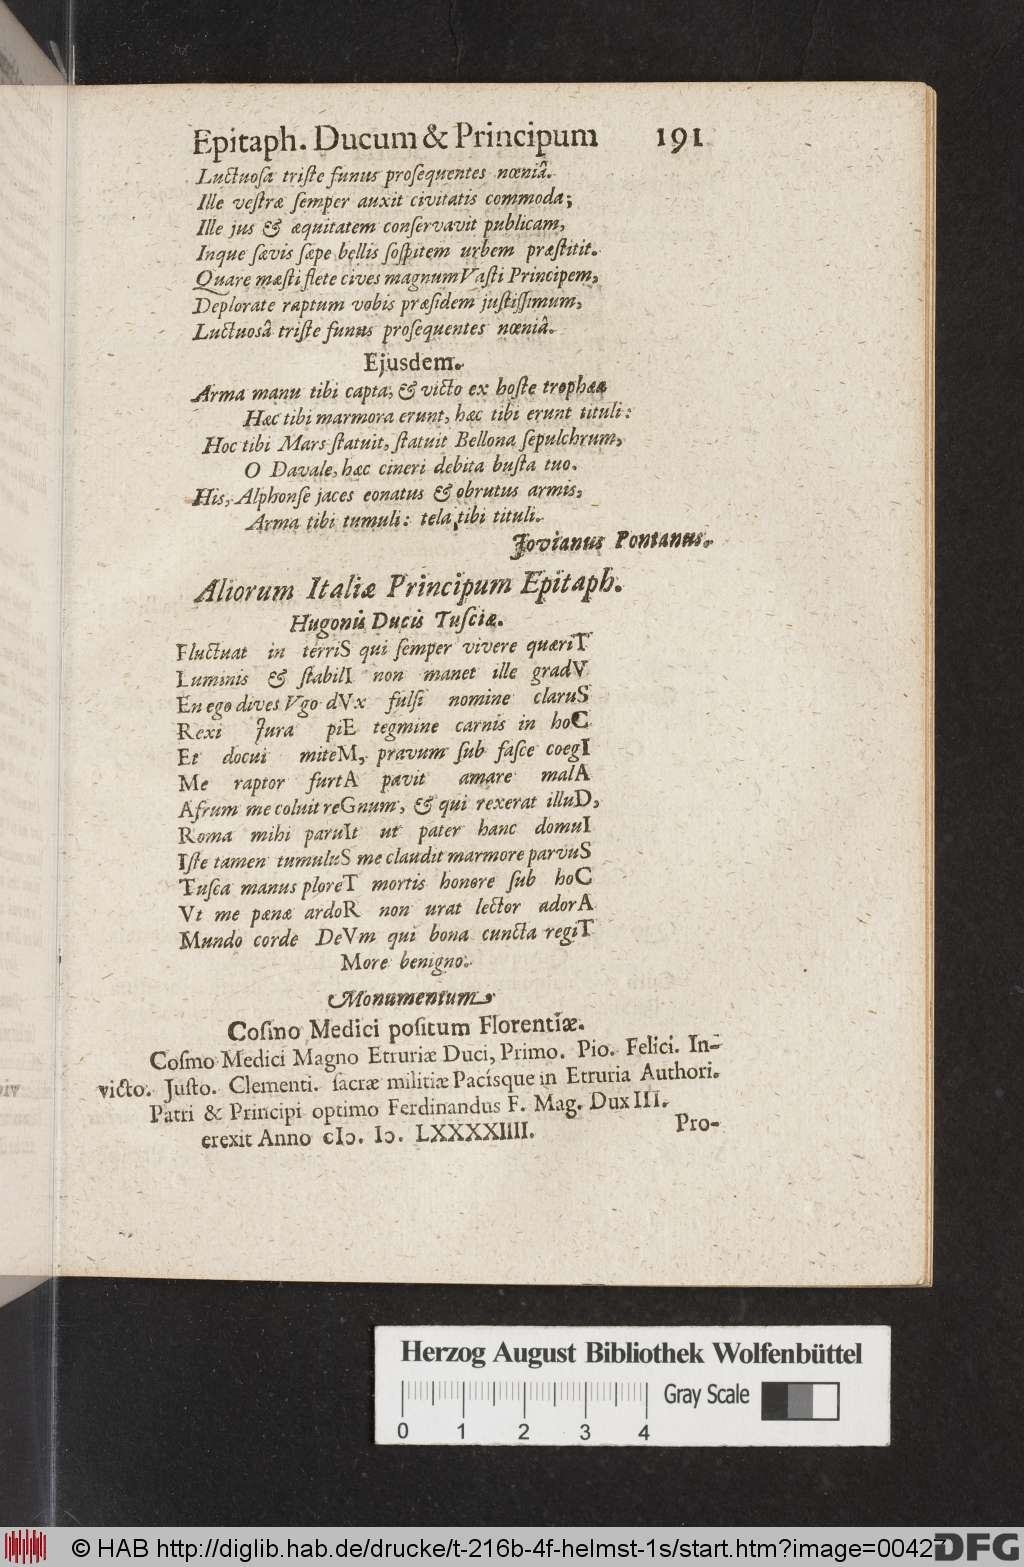 Epitaph. Ducum & Principum 191
Luctuosa triste funus prosequentes nœniâ.
Ille vestræ semper auxit civitatis commoda;
Ille jus & æquitatem conservavit publicam,
Inque sævis sæpe bellis sospitem urbem præstitit.
Quare mæsti flete cives magnum Vasti Principem,
Deplorate raptum vobis præsidem justissimum,
Luctuosâ triste funus prosequentes nœniâ.
Ejusdem.
Arma manu tibi capta, & victo ex hoste trophæa
Hæc tibi marmora erunt, hæc tibi erunt tituli:
Hoc tibi Mars statuit, statuit Bellona sepulchrum,
O Davale, hæc cineri debita busta tuo.
His, Alphonse jaces eonatus & obrutus armis,
Arma tibi tumuli: tela tibi tituli.
Jovianus Pontanus.
Aliorum Italiæ Principum Epitaph.
Hugonis Ducis Tusciæ.
Fluctuat in terriS qui semper vivere quæriT
Luminis & stabilI non manet ille gradV
En ego dives Vgo dVx fulsi nomine claruS
Rexi Jura piE tegmine carnis in hoC
Et docui miteM, pravum sub fasce coegI
Me raptor furtA pavit amare malA
Afrum me coluit reGnum, & qui rexerat illuD,
Roma mihi paruIt ut pater hanc domuI
Iste tamen tumuluS me claudit marmore parvuS
Tusca manus ploreT mortis honore sub hoC
Vt me pænæ ardoR non urat lector adorA
Mundo corde DeVm qui bona cuncta regiT
More benigno.
Monumentum
Cosmo Medici positum Florentiæ.
Cosmo Medici Magno Etruriæ Duci, Primo. Pio. Felici. In-
victo. Justo. Clementi. sacræ militiæ Pacisque in Etruria Authori.
Patri & Principi optimo Ferdinandus F. Mag. Dux III.
erexit Anno cIↄ. Iↄ. LXXXXIIII. Pro-
Herzog August Bibliothek Wolfenbüttel
Gray Scale
0 1 2 3 4
© HAB http://diglib.hab.de/drucke/t-216b-4f-helmst-1s/start.htm?image=00427
DFG